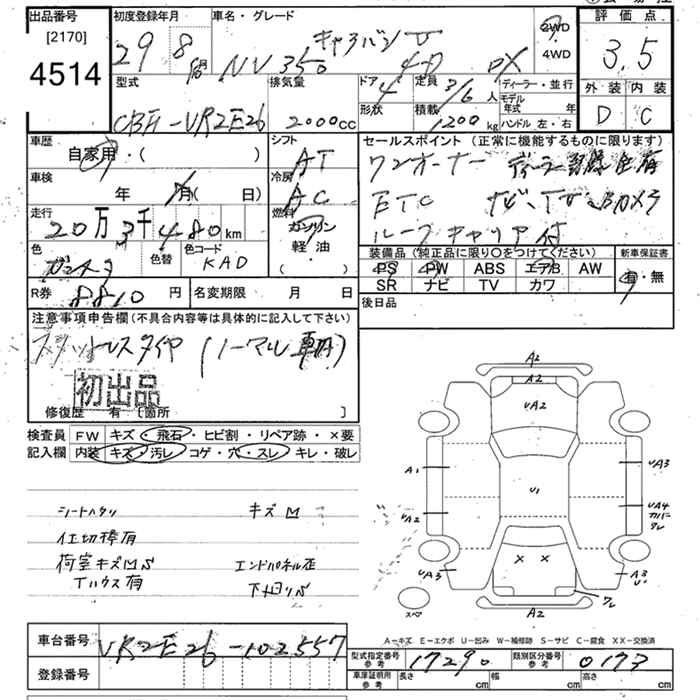 出品番号
[2170]
4514
初度登録年月
29 8
車名・グレード
NV350 キャラバン 4D DX
2WD
4WD
評価点
3.5
外装 内装
D C
型式
CBF-VR2E26
排気量
2000cc
ドア
4
形状
定員
3/6人
積載
1200kg
ディーラー・並行
モデル年式 年
ハンドル 左・右
車歴
自家用・( )
シフト
AT
車検
年 月( 日)
冷房
AC
走行
20万3千480km
燃料
ガソリン
軽・油
( )
色
色替
色コード
KAD
R券
8810円
名変期限 月 日
セールスポイント(正常に機能するものに限ります)
ワンオーナー
ETC ナビ、TV カメラ
ルーフキャリア付
装備品(純正品に限り○をつけてください)
PS PW ABS エアB AW
SR ナビ TV カワ
新車保証書
有・無
後日品
注意事項申告欄(不具合内容等は具体的に記入して下さい)
スタットレスタイヤ(ノーマル 
初出品
修復歴 有〔箇所 〕
検査員 FW キズ・飛石・ヒビ割・リペア跡・×要
記入欄 内装 キズ・汚レ・コゲ・穴・スレ・キレ・破レ
シートヘタリ キズ凹
仕切棒有
荷室キズ凹S エンドパネル歪
Tハウス有 下廻りS
A2
A2
UA2
A1
UA3
U1
UA2
UA4
カバー
ワレ
× ×
UA3
A3
U1
ワレ
スペア
A2
A-キズ E-エクボ U-凹み W-補修跡 S-サビ C-腐食 XX-交換済
車台番号 VR2E26-102557
登録番号
型式指定番号
参考
17290
類別区分番号
参考
0173
車庫証明用
参考
長さ cm 幅 cm 高さ cm